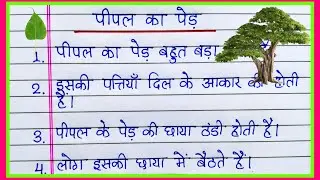 पीपल का पेड़
1. पीपल का पेड़ बहुत बड़ा
2. इसकी पत्तियाँ दिल के आकार की होती
हैं।
3. पीपल के पेड़ की छाया ठंडी होती है।
4. लोग इसकी छाया में बैठते हैं।